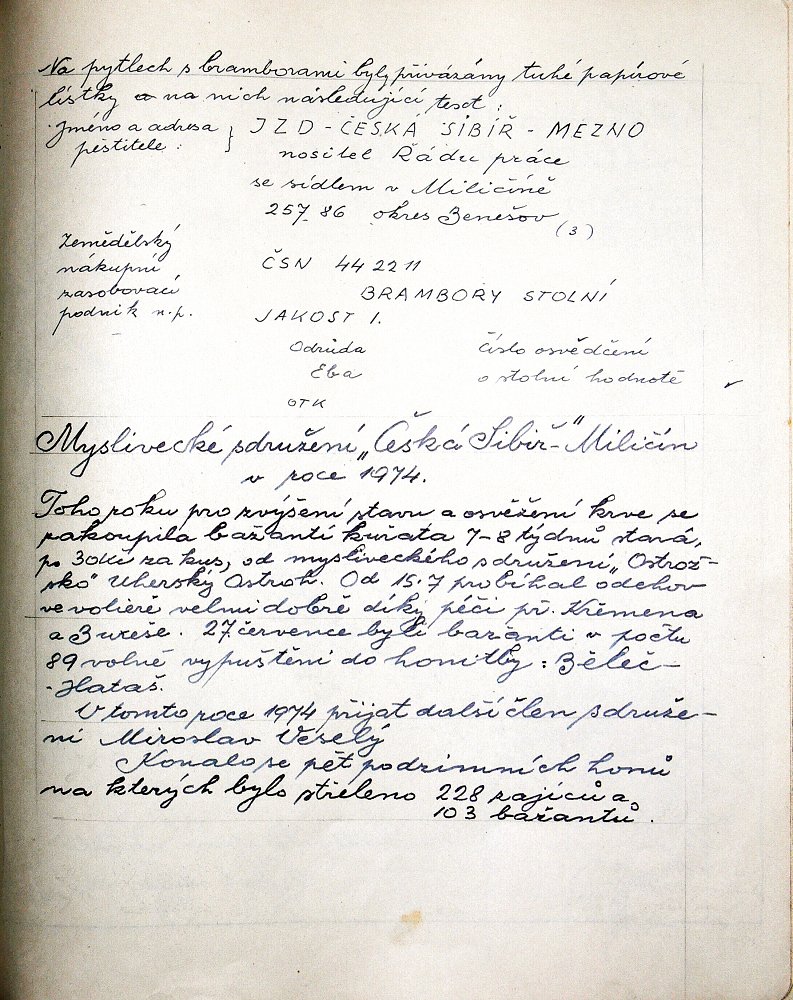 Na pytlech s bramborami byly přivázány tuhé papírové
lístky a na nich následující text :
Jméno a adresa } JZD - ČESKÁ SIBIŘ - MEZNO
pěstitele :
nositel Řádu práce
se sídlem v Miličíně
257 86 okres Benešov
(3)
Zemědělský
nákupní ČSN 44 22 11
zasobovací BRAMBORY STOLNÍ
podnik n.p. JAKOST I.
Odrůda číslo osvědčení
Eba o stolní hodnotě
OTK
Myslivecké sdružení „Česká Sibiř-" Miličín
v roce 1974.
Toho roku pro zvýšení stavu a osvěžení krve se
zakoupila bažantí kuřata 7-8 týdnů stará,
po 30Kč za kus, od mysliveckého sdružení „Ostrož-
sko" Uherský Ostroh. Od 15.7 probíhal odchov
ve voliéře velmi dobře díky péči př. Křemena
a Bureše. 27. července byli bažanti v počtu
89 volně vypuštěni do honitby : Běleč-
-Hataš.
V tomto roce 1974 přijat další člen sdruže-
ní Miroslav Veselý
Konalo se pět podzimních honů
na kterých bylo střeleno 228 zajíců a
103 bažantů.